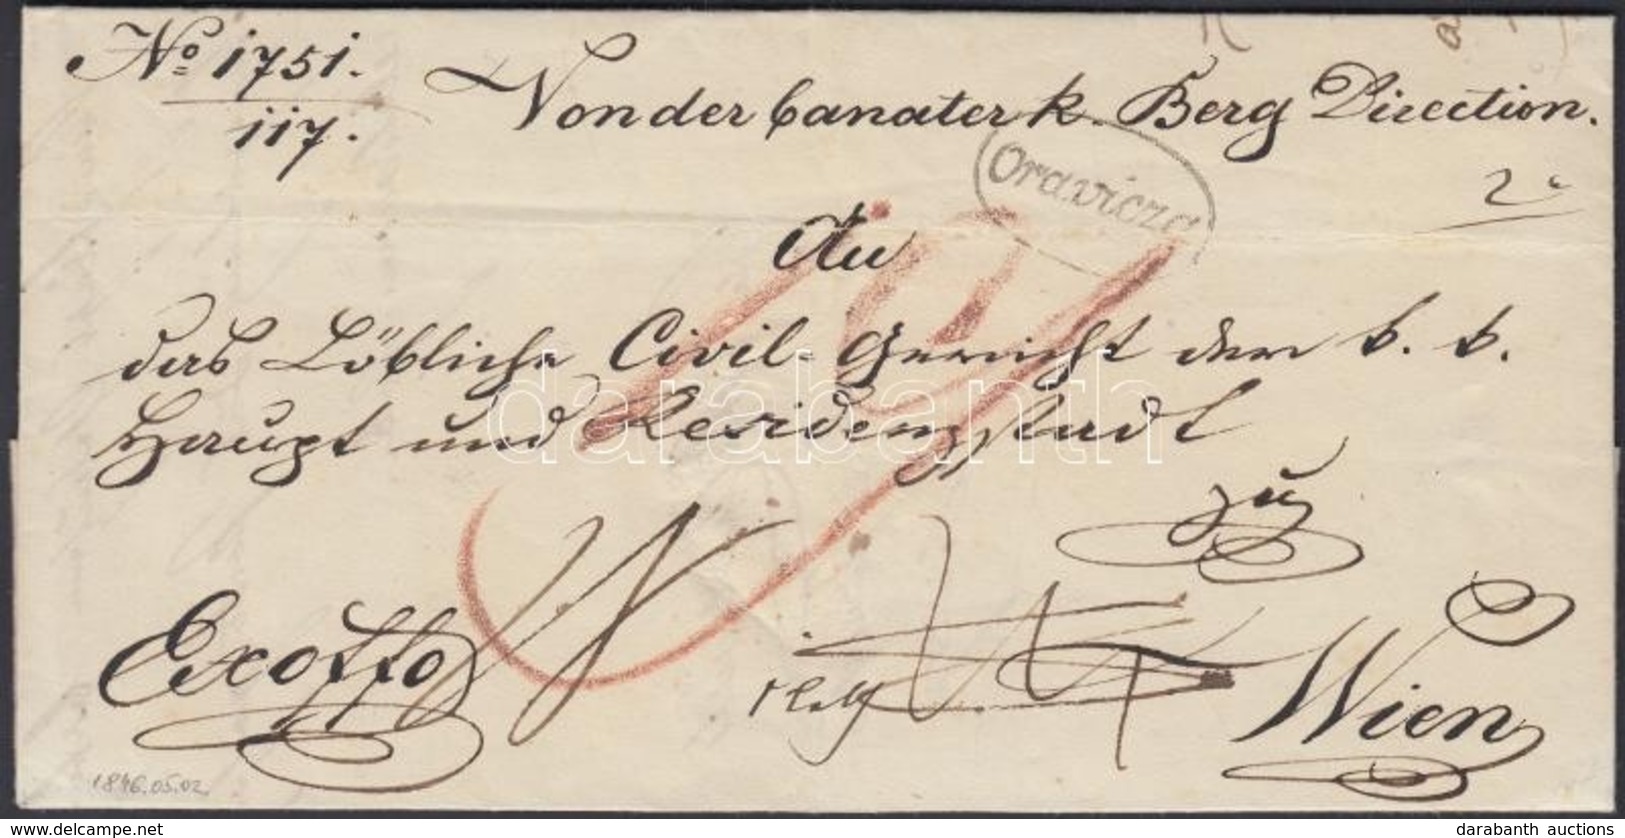 No 1751.
117.
Von der banater k. Berg Direction.
Oravicza
2
An
das Löbliche Civil-Gericht der k. k.
Haupt und Residenzstadt
zu
Exoffo
Wien
1846.05.02.
darabanth
www.delcampe.net
darabanth auctions